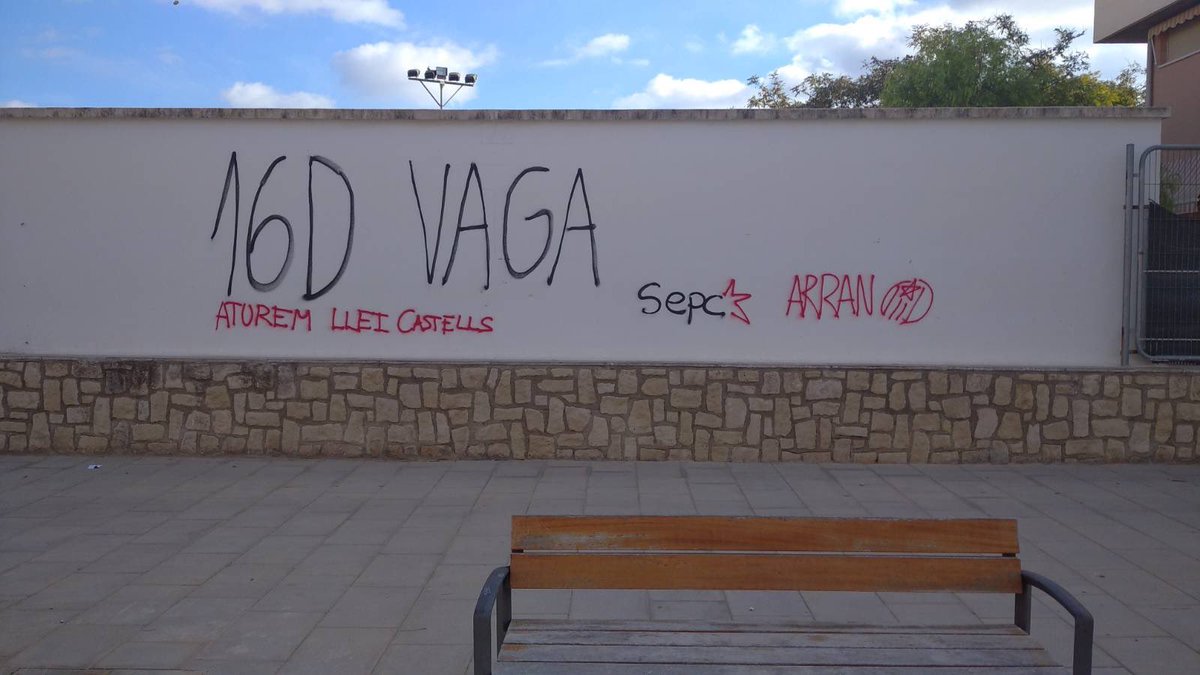 16D VAGA
ATUREM LLEI CASTELLS
Sepc
ARRAN